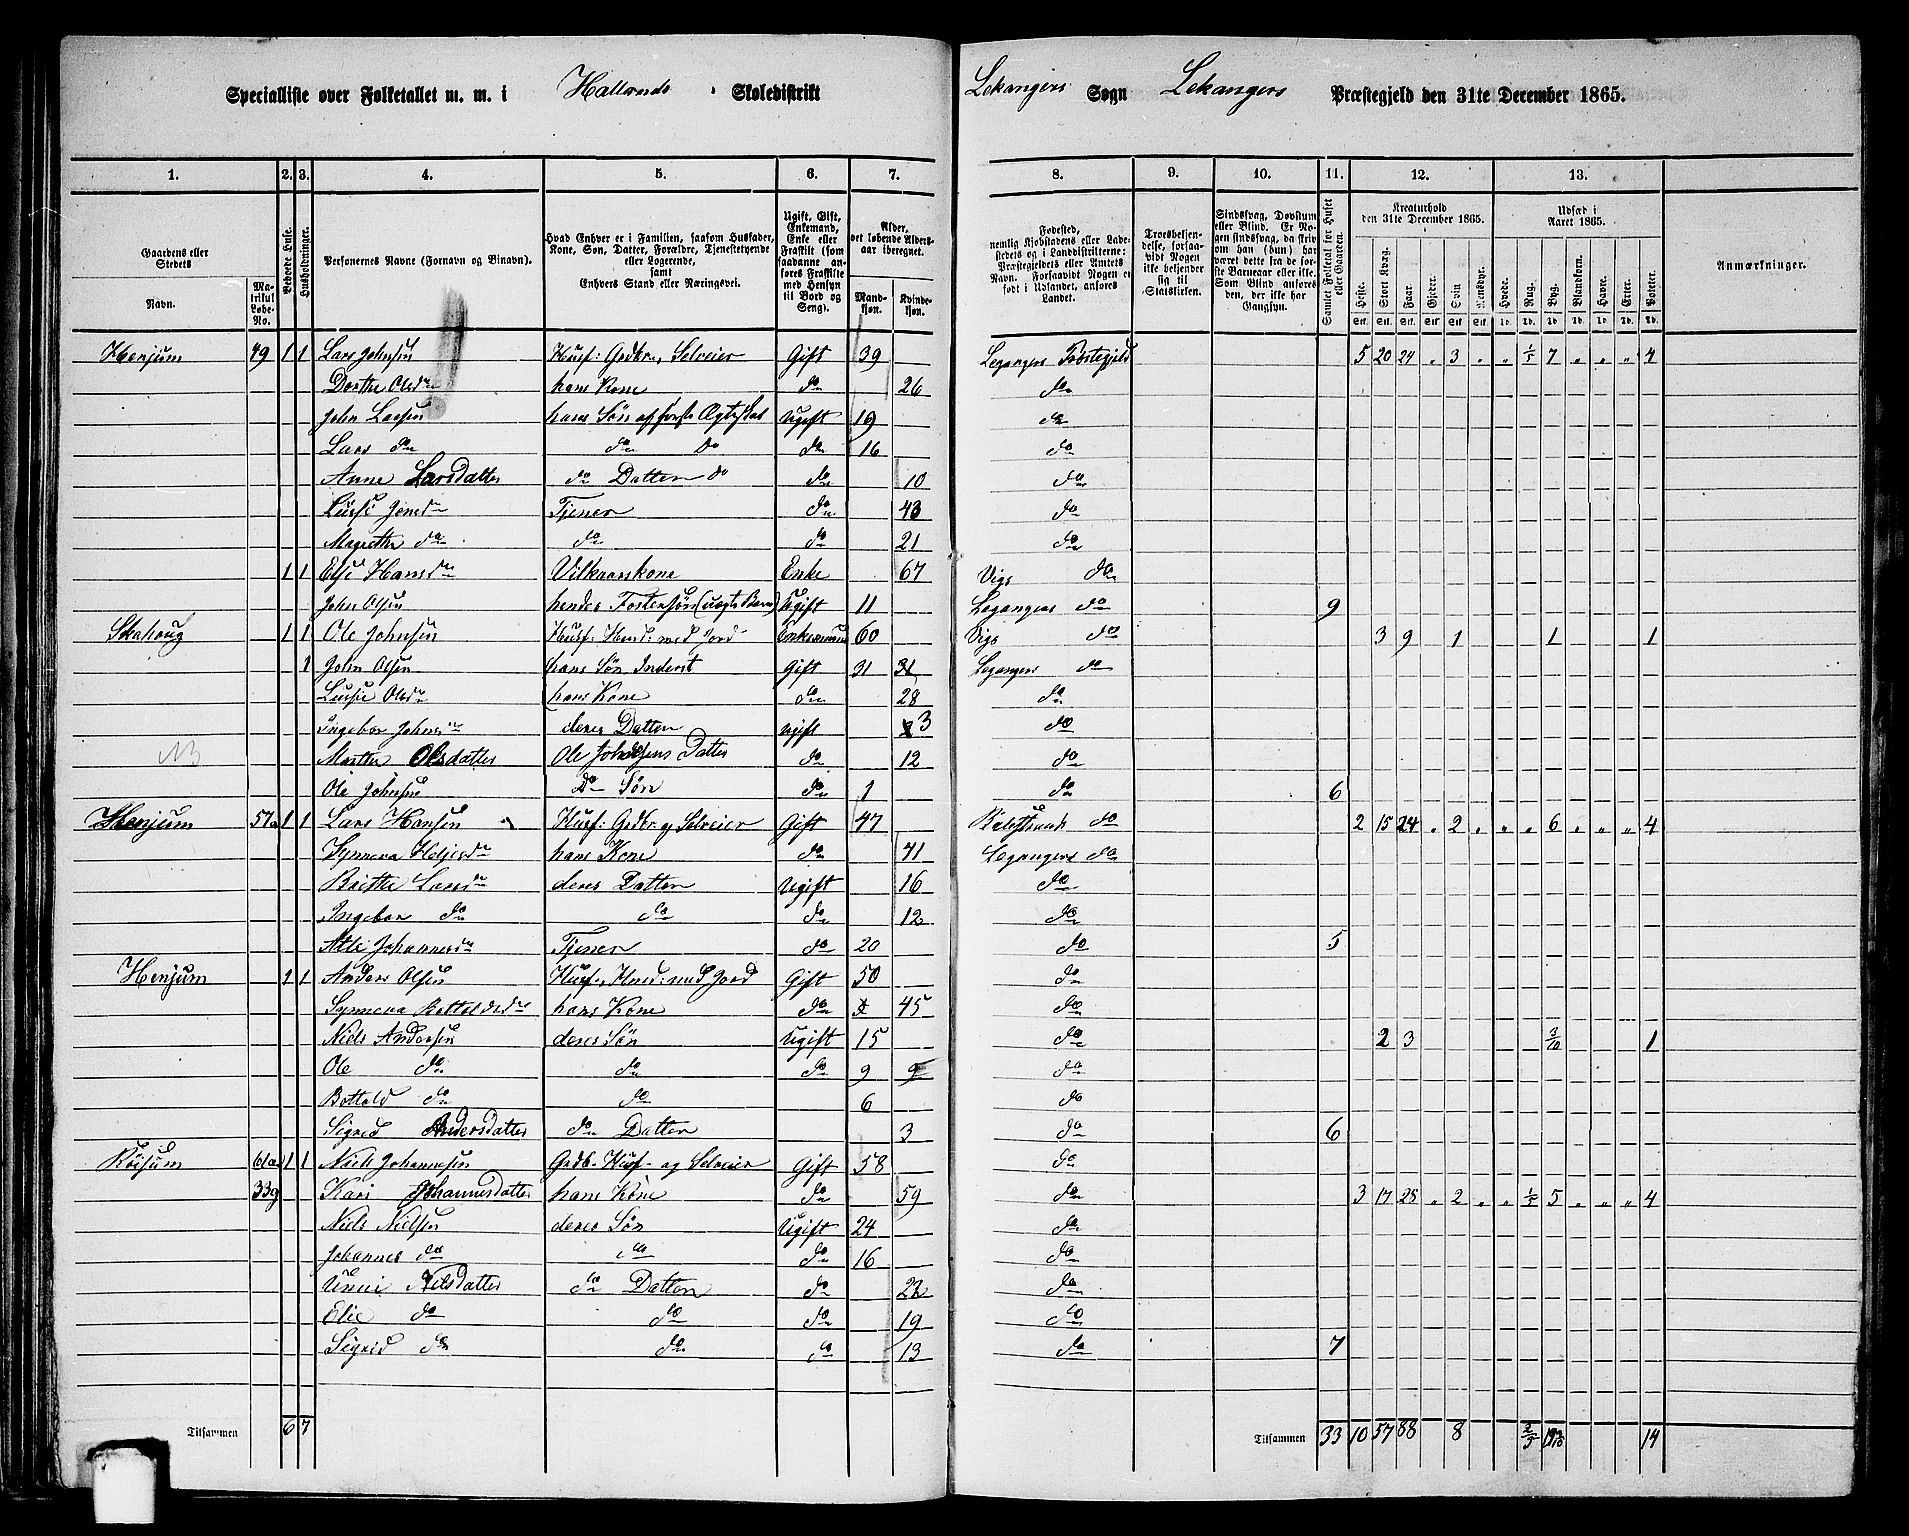 Specialliste over Folketallet m. m. i Hallands Skoledistrikt Lekangers Sogn Lekangers Præstegjeld den 31te December 1865.
1. 2. 3. 4. 5. 6. 7. 8. 9. 10. 11. 12. 13.
Gaardens eller Stedets Navn. Matrikul Løbe-No. Beboede Huse. Husholdninger. Personernes Navne (Fornavn og Binavn). Hvad Enhver er i Familien, saasom Husfader, Kone, Søn, Datter, Forældre, Tjenestetyende eller Logerende, samt Enhvers Stand eller Næringsvei. Ugift, Gift, Enkemand, Enke eller Fraskilt (som saadanne anføres Fraskilte med Hensyn til Bord og Seng). Alder, det løbende Alders-aar iberegnet. Mandkjøn. Kvindekjøn. Fødested, nemlig Kjøbstadens eller Ladestedets og i Landdistrikterne: Præstegjeldets eller Amtets Navn. Forsaavidt Nogen er født i Udlandet, anføres Landet. Troesbekjendelse, forsaavidt Nogen ikke bekjender sig til Statskirken. Sindssvag, Døvstum eller Blind. Er Nogen sindssvag, da skrives om han (hun) har været dette fra de første Barneaar eller ikke. Som Blind anføres den, der ikke har Gangsyn. Samlet Folketal for Huset eller Gaarden. Kreaturhold den 31te December 1865. Heste. Stort Kvæg. Faar. Gjeder. Svin. Rensdyr. Udsæd i Aaret 1865. Hvede. Rug. Byg. Blandkorn. Havre. Erter. Poteter. Anmærkninger.
Henjum 49 1 1 Lars Johnsen Husf: Grdbr, Selveier Gift 39 Leganger Præstegjeld 5 20 24 „ 3 „ „ 1/5 7 „ „ „ 4
Dorthe Olsdr hans Kone do 26 do
John Larsen hans Søn af første Ægteskab Ugift 19 do
Lars do do do do 16 do
Anne Larsdatter do Datter do do 10 do
Jensdr Tjener do 43 do
Magrethe do do do 21 do
Else Hansdr 1 1 Vilkaarskone Enke 67 Vigs do
John Olsen hendes Fostersøn (uægte Barn) Ugift 11 Legangers do 9
Skahoug 1 1 Ole Johnsen Husf: Husmd: med Jord Enkemand 60 Vigs do 3 9 1 1 1
1 John Olsen hans Søn Inderst Gift 31 31 Legangers do
Olsdr hans Kone do 28 do
Ingebor Johnsdr deres Datter ugift 3 do
NB Marthe Olsdatter Ole Johnsens Datter do 12 do
Ole Johnsen Do Søn do 1 do 6
Henjum 57a 1 1 Lars Hansen Husf: Grdbr og Selveier Gift 47 Balestrands do 2 15 24 „ 2 „ „ „ 6 „ „ „ 4
Synneva hans Kone do 41 Legangers do
Brithe Larsdr deres Datter Ugift 16 do
Ingebor do do do 12 do
Atle Johannesdr Tjener do 20 do 5
Henjum 1 1 Anders Olsen Husf, Husmd: med Jord Gift 50 do
Synneva Bottolvsdr hans Kone do 45 do
Niels Andersen deres Søn Ugift 15 do 2 3 3/10 1
Ole do do do 9 9 do
Bottold do do 6 do
Sigrid Andersdatter do Datter 3 do 6
Röisum 61a 1 1 Niels Johannesen Grdb. Husf. og Selveier Gift 58 do
33g Kari Johannesdatter hans Kone do 59 do 3 17 28 „ 2 „ „ 1/5 5 „ „ „ 4
Niels Nielsen deres Søn Ugift 24 do
Johannes do do do 16 do
Unni Nielsdatter do Datter do 22 do
Elie do do do 19 do
Sigrid do do do 13 do 7
Tilsammen 6 7 Tilsammen 33 10 57 88 8 2/5 19 3/10 14